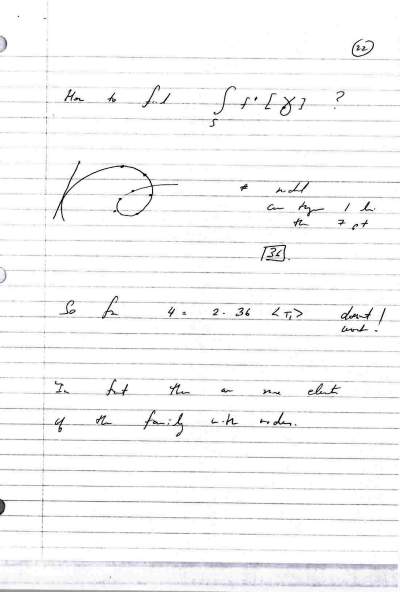 22
How to find ∫_S f*[γ] ?
# nodal
can tgn 1 li
the 7 pt
36.
So far 4 = 2·36 <τ₁> doesn't
work!
In fact there are more elements
of the family with nodes.